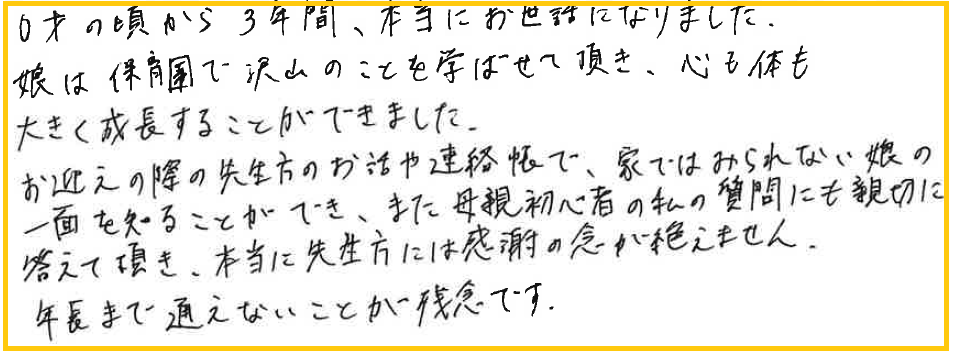 0才の頃から3年間、本当にお世話になりました.
娘は保育園で沢山のことを学ばせて頂き、心も体も
大きく成長することができました.
お迎えの際の先生方のお話や連絡帳で、家ではみられない娘の
一面を知ることができ、また母親初心者の私の質問にも親切に
答えて頂き、本当に先生方には感謝の念が絶えません.
年長まで通えないことが残念です.